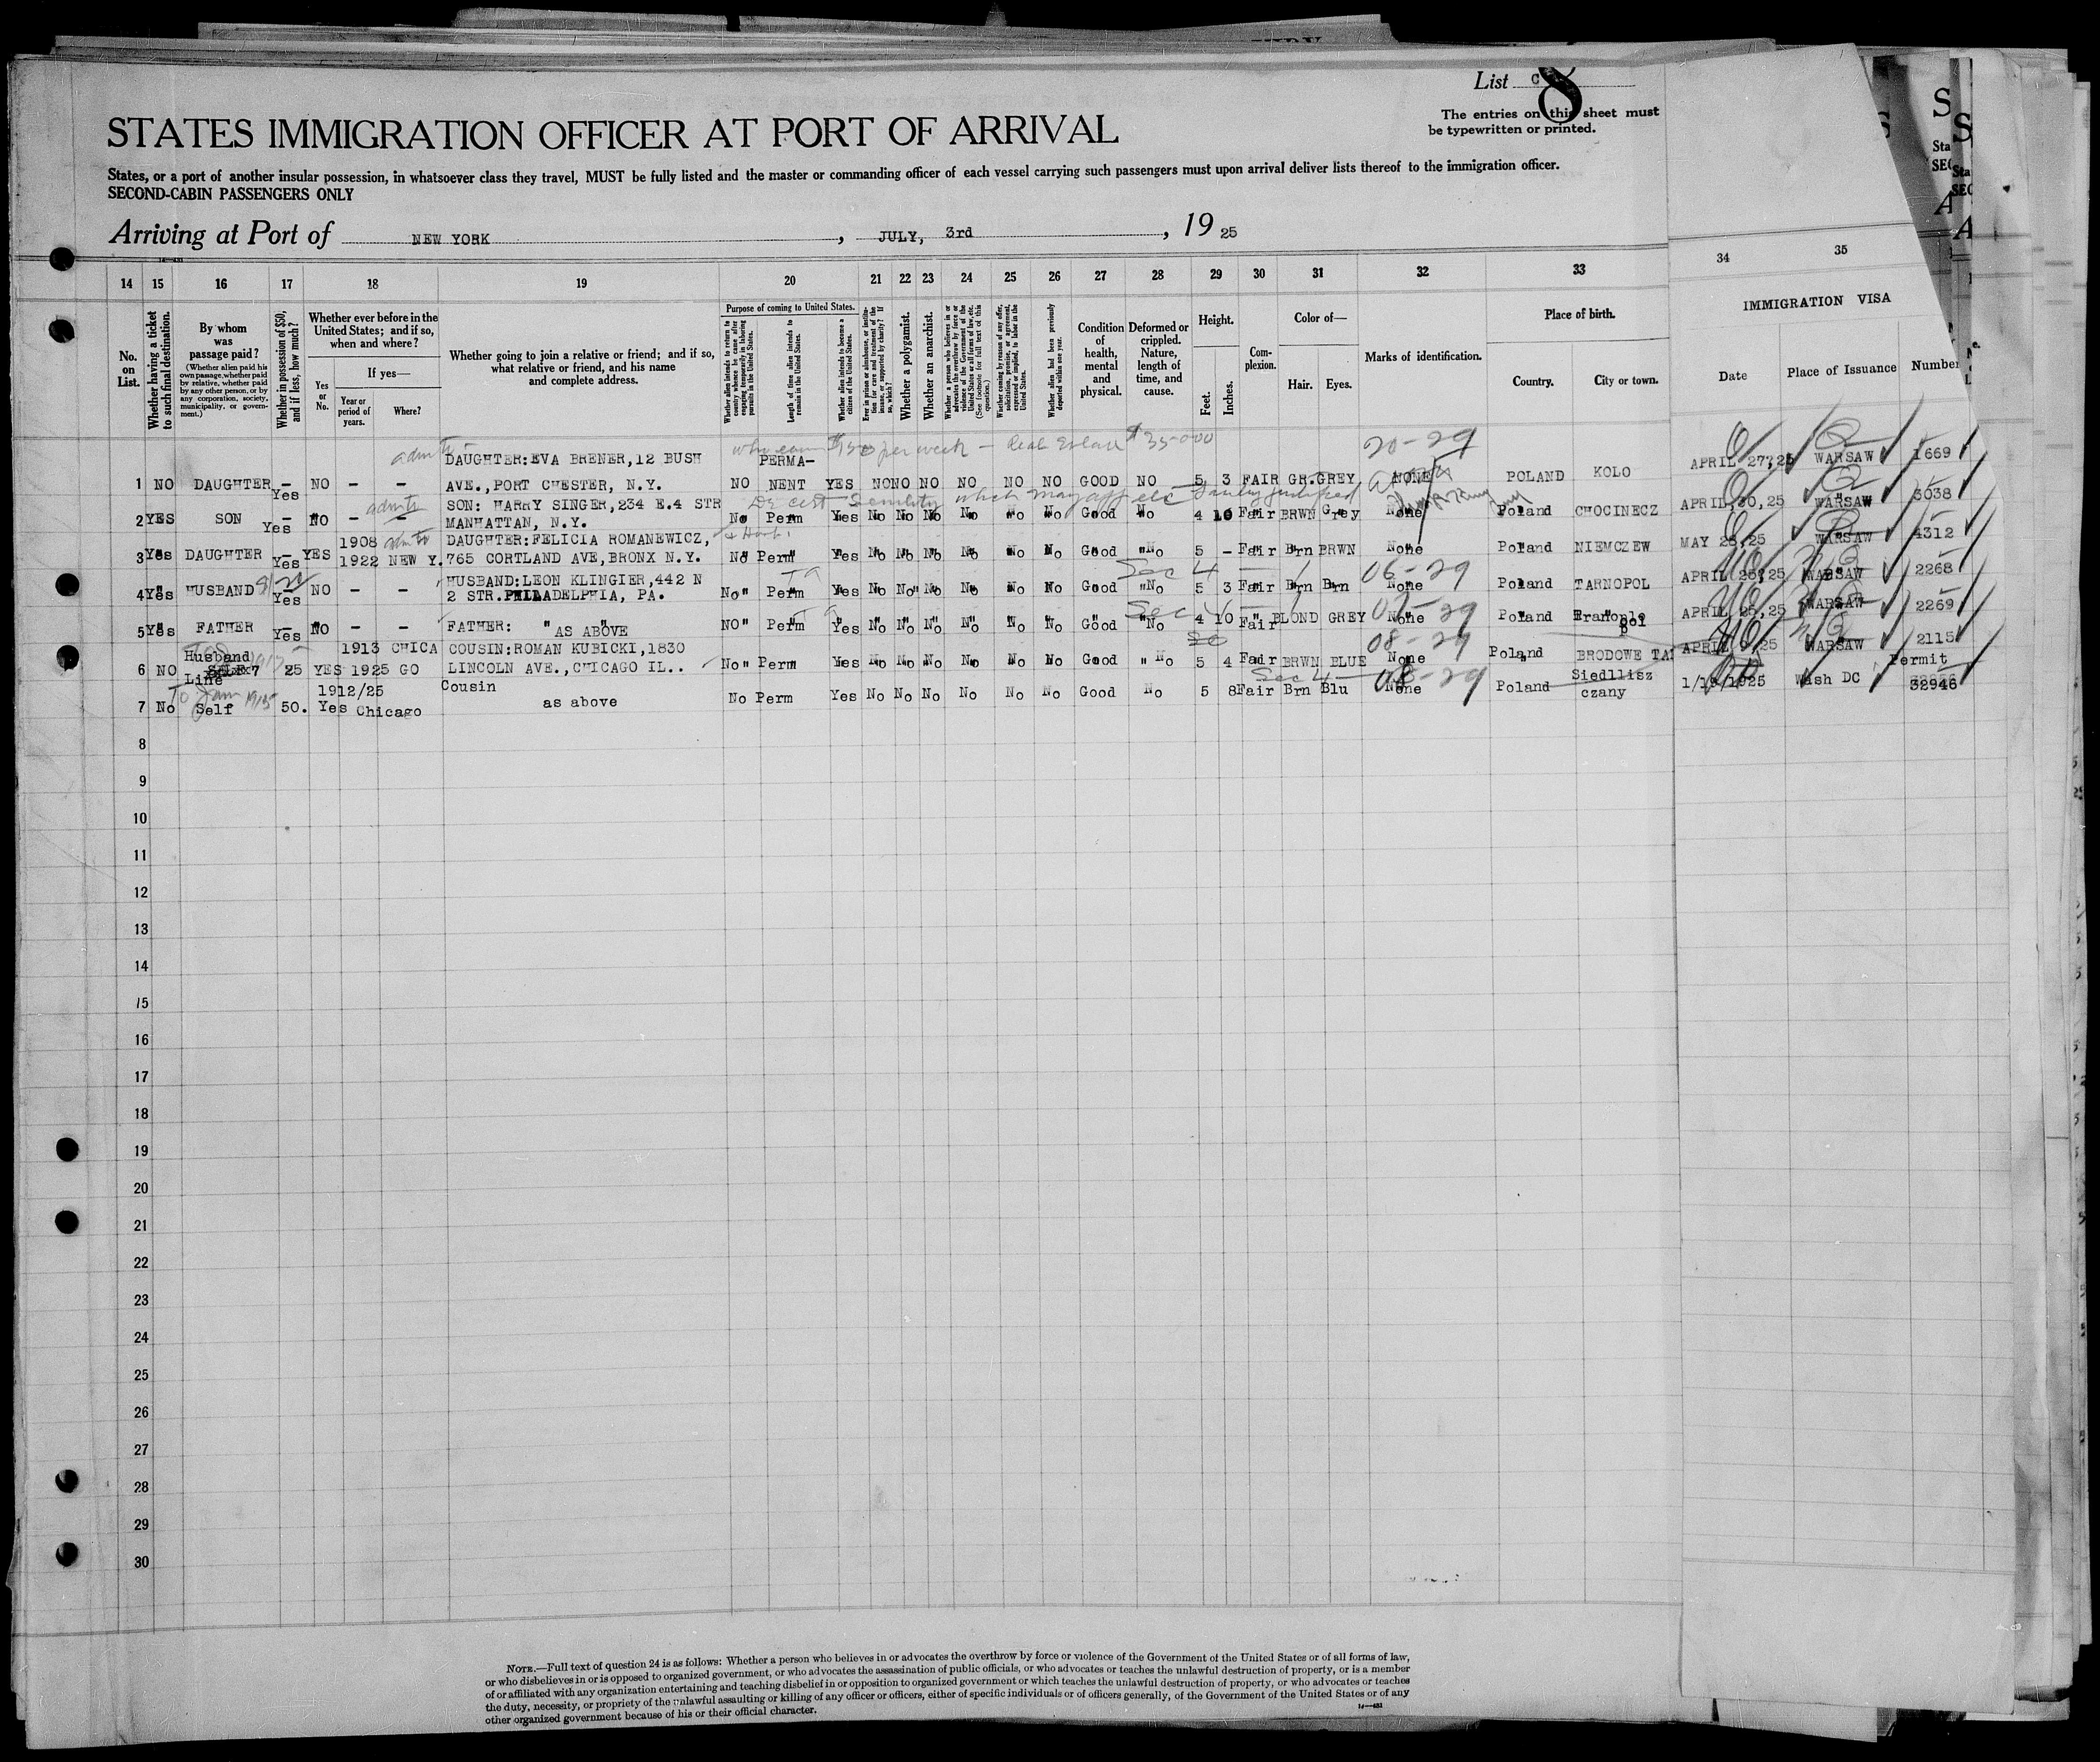 List C 8
The entries on this sheet must
be typewritten or printed.
STATES IMMIGRATION OFFICER AT PORT OF ARRIVAL
States, or a port of another insular possession, in whatsoever class they travel, MUST be fully listed and the master or commanding officer of each vessel carrying such passengers must upon arrival deliver lists thereof to the immigration officer.
SECOND-CABIN PASSENGERS ONLY
Arriving at Port of NEW YORK, JULY, 3rd, 19 25
14 15 16 17 18 19 20 21 22 23 24 25 26 27 28 29 30 31 32 33 34 35
No. on List.
Whether having a ticket to such final destination.
By whom was passage paid?
(Whether alien paid his own passage, whether paid by relative, whether paid by any other person, or by any corporation, society, municipality, or government.)
Whether in possession of $50, and if less, how much?
Whether ever before in the United States; and if so, when and where?
Yes or No.
If yes—
Year or period of years.
Where?
Whether going to join a relative or friend; and if so, what relative or friend, and his name and complete address.
Purpose of coming to United States.
Whether alien intends to return to country whence he came after engaging temporarily in laboring pursuits in the United States.
Length of time alien intends to remain in the United States.
Whether alien intends to become a citizen of the United States.
Ever in prison or almshouse, or institution for care and treatment of the insane, or supported by charity? If so, which?
Whether a polygamist.
Whether an anarchist.
Whether a person who believes in or advocates the overthrow by force or violence of the Government of the United States or all forms of law, etc. (See footnote for full text of this question.)
Whether coming by reason of any offer, solicitation, promise, or agreement, expressed or implied, to labor in the United States.
Whether alien had been previously deported within one year.
Condition of health, mental and physical.
Deformed or crippled. Nature, length of time, and cause.
Height.
Feet. Inches.
Complexion.
Color of—
Hair. Eyes.
Marks of identification.
Place of birth.
Country. City or town.
IMMIGRATION VISA
Date Place of Issuance Number
who earn $150 per week — Real Estate $35000 20-29
admitt DAUGHTER:EVA BRENER,12 BUSH PERMA- APRIL 27,25 WARSAW 1669
1 NO DAUGHTER - Yes NO - - AVE.,PORT CHESTER, N.Y. NO NENT YES NO NO NO NO NO NO GOOD NO 5 3 FAIR GR. GREY NONE POLAND KOLO
admitt SON: HARRY SINGER,234 E.4 STR Dr cert Senility which may aff elc APRIL,30,25 WARSAW 3038
2 YES SON - Yes NO - - MANHATTAN, N.Y. No Perm Yes No No No No No No Good No 4 10 Fair BRWN Grey None Poland CHOCINECZ
1908 DAUGHTER:FELICIA ROMANEWICZ, MAY 28,25 WARSAW 4312
3 Yes DAUGHTER - Yes YES 1922 NEW Y. 765 CORTLAND AVE,BRONX N.Y. No Perm Yes No No No No No No Good No 5 - Fair Brn BRWN None Poland NIEMCZEW
HUSBAND:LEON KLINGIER,442 N Sec 4 06-29 APRIL 25,25 WARSAW 2268
4 Yes HUSBAND - Yes NO - - 2 STR.PHILADELPHIA, PA. No Perm Yes No No No No No No Good No 5 3 Fair Brn Brn None Poland TARNOPOL
Sec 4 07-29 APRIL 25,25 WARSAW 2269
5 Yes FATHER - Yes NO - - FATHER: " AS ABOVE " NO Perm Yes No No No No No No Good No 4 10 Fair BLOND GREY None Poland
Husband 1913 CHICA COUSIN:ROMAN KUBICKI,1830 08-29 WARSAW 2115
6 NO 25 YES 1925 GO LINCOLN AVE.,CHICAGO IL.. No Perm Yes No No No No No No Good No 5 4 Fair BRWN BLUE None Poland BRODOWE TA
Line 1912/25 Cousin Sec 4 08-29 Siedllisz Permit
7 No Self 50. Yes Chicago as above No Perm Yes No No No No No No Good No 5 8 Fair Brn Blu None Poland czany 1/19/1925 Wash DC 32946
8
9
10
11
12
13
14
15
16
17
18
19
20
21
22
23
24
25
26
27
28
29
30
NOTE.—Full text of question 24 is as follows: Whether a person who believes in or advocates the overthrow by force or violence of the Government of the United States or of all forms of law,
or who disbelieves in or is opposed to organized government, or who advocates the assassination of public officials, or who advocates or teaches the unlawful destruction of property, or is a member
of or affiliated with any organization entertaining and teaching disbelief in or opposition to organized government or which teaches the unlawful destruction of property, or who advocates or teaches
the duty, necessity, or propriety of the unlawful assaulting or killing of any officer or officers, either of specific individuals or of officers generally, of the Government of the United States or of any
other organized government because of his or their official character.